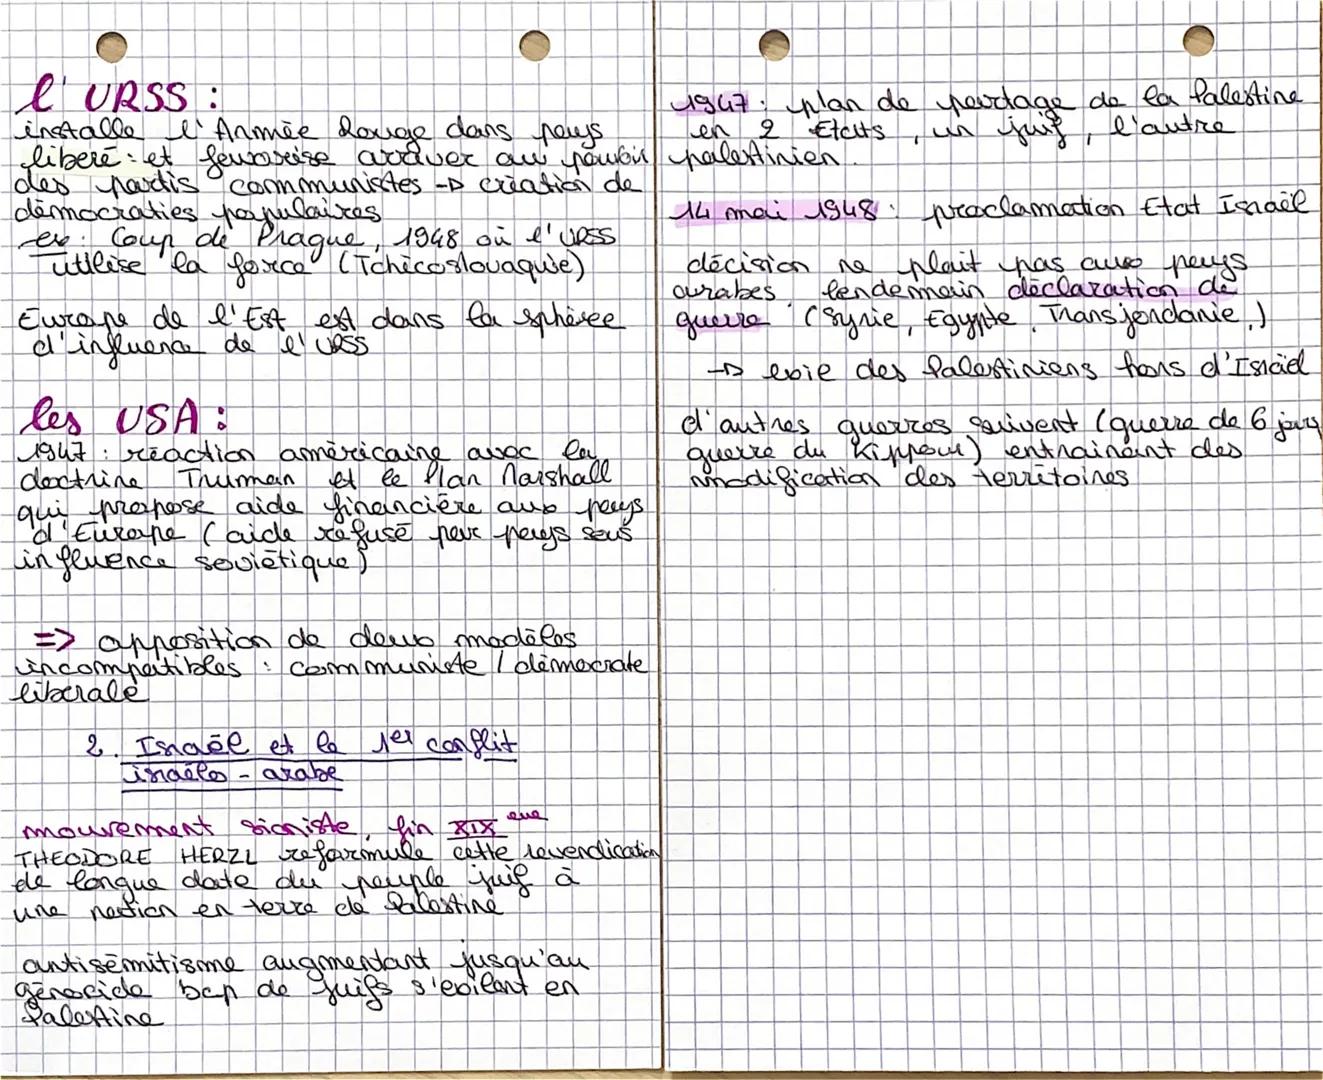 l'URSS :
installe l'Armée Rouge dans pays
libéré : et favorise arriver au pouvoir
des partis communistes -> création de
démocraties populaires
ex : Coup de Prague, 1948 où l'URSS
utilise la force (Tchécoslovaquie)
Europe de l'Est est dans la sphère
d'influence de l'URSS
les USA :
1947 : réaction américaine avec la
doctrine Truman et le Plan Marshall
qui propose aide financière aux pays
d'Europe (aide refusé par pays sous
influence soviétique)
=> opposition de deux modèles
incompatibles : communiste / démocrate
libérale
2. Israël et le 1er conflit
israélo - arabe
mouvement sioniste, fin XIX eme
THEODORE HERZL reformule cette revendication
de longue date du peuple juif à
une nation en terre de Palestine
antisémitisme augmentant jusqu'au
génocide bcp de juifs s'exilent en
Palestine
1947 : plan de partage de la Palestine
en 2 Etats, un juif, l'autre
palestinien.
14 mai 1948 : proclamation Etat Israël
décision ne plait pas aux pays
arabes, lendemain déclaration de
guerre (Syrie, Egypte, Transjordanie,)
-> exie des Palestiniens hors d'Israël
d'autres guerres suivent (guerre de 6 jours
guerre du Kippour) entrainant des
modification des territoires